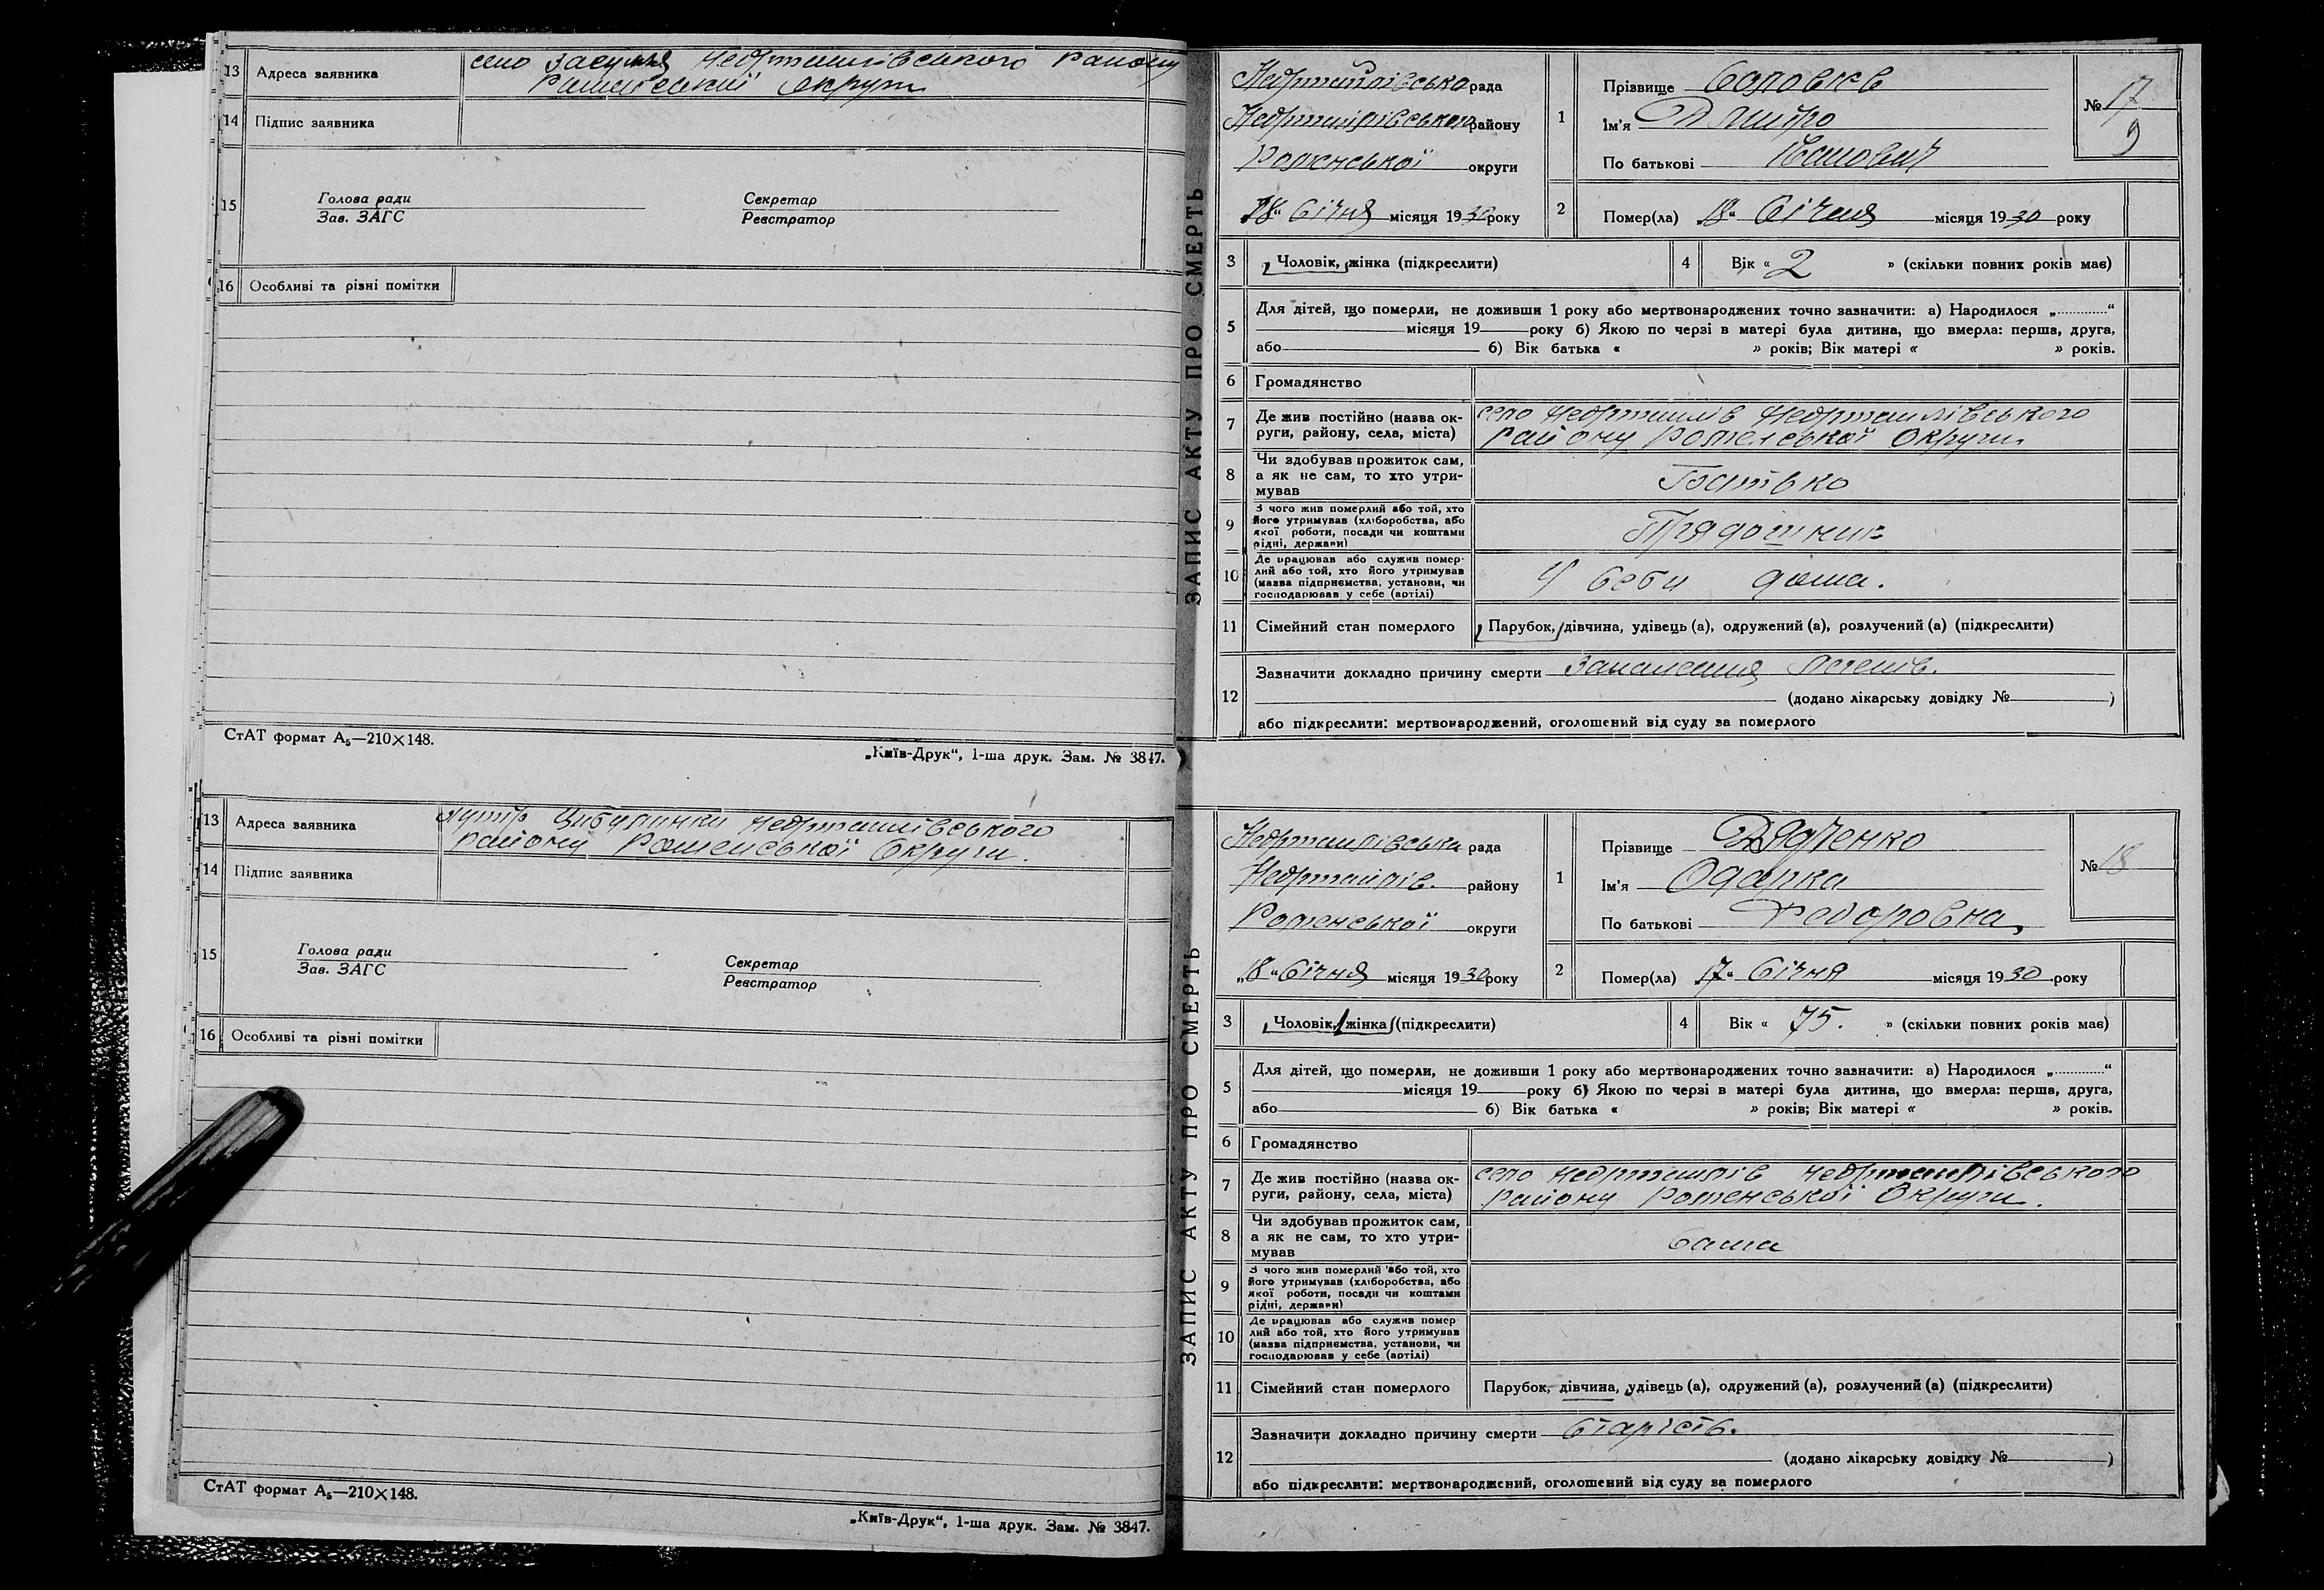 13 Адреса заявника село Засулля Недригайлівського Району
Роменської Округи
14 Підпис заявника
15 Голова ради Секретар
Зав. ЗАГС Реєстратор
16 Особливі та різні помітки
СтАТ формат А5—210×148.
„Київ-Друк“, 1-ша друк. Зам. № 3847.
13 Адреса заявника хутір Цибуленки Недригайлівського
району Роменської Округи.
14 Підпис заявника
15 Голова ради Секретар
Зав. ЗАГС Реєстратор
16 Особливі та різні помітки
СтАТ формат А5—210×148.
„Київ-Друк“, 1-ша друк. Зам. № 3847.
ЗАПИС АКТУ ПРО СМЕРТЬ
Недригайлівська рада
Недригайлівського району
Роменської округи
„18“ Січня місяця 1930 року
1 Прізвище
Ім'я Дмитро
По батькові Іванович
№ 17
9
2 Помер(ла) „18“ Січня місяця 1930 року
3 Чоловік, жінка (підкреслити)
4 Вік « 2 » (скільки повних років має)
5 Для дітей, що померли, не доживши 1 року або мертвонароджених точно зазначити: а) Народилося „............“
місяця 19 року б) Якою по черзі в матері була дитина, що вмерла: перша, друга,
або б) Вік батька « » років; Вік матері « » років.
6 Громадянство
7 Де жив постійно (назва ок-
руги, району, села, міста) село Недригайлів Недригайлівського
Району Роменської Округи
8 Чи здобував прожиток сам,
а як не сам, то хто утри-
мував Батько
9 З чого жив померлий або той, хто
його утримував (хліборобства, або
якої роботи, посади чи коштами
рідні, держави)
10 Де працював або служив помер-
лий або той, хто його утримував
(назва підприємства, установи, чи
господарював у себе (артілі) У себи дома.
11 Сімейний стан померлого Парубок, дівчина, удівець (а), одружений (а), розлучений (а) (підкреслити)
12 Зазначити докладно причину смерти Запалення легенів.
(додано лікарську довідку № )
або підкреслити: мертвонароджений, оголошений від суду за померлого
ЗАПИС АКТУ ПРО СМЕРТЬ
Недригайлівська рада
Недригайлів. району
Роменської округи
„18“ Січня місяця 1930 року
1 Прізвище Дядченко
Ім'я Одарка
По батькові Федоровна
№ 18
2 Помер(ла) „17“ Січня місяця 1930 року
3 Чоловік, жінка (підкреслити)
4 Вік « 75. » (скільки повних років має)
5 Для дітей, що померли, не доживши 1 року або мертвонароджених точно зазначити: а) Народилося „............“
місяця 19 року б) Якою по черзі в матері була дитина, що вмерла: перша, друга,
або б) Вік батька « » років; Вік матері « » років.
6 Громадянство
7 Де жив постійно (назва ок-
руги, району, села, міста) село Недригайлів Недригайлівського
Району Роменської Округи.
8 Чи здобував прожиток сам,
а як не сам, то хто утри-
мував Сама
9 З чого жив померлий або той, хто
його утримував (хліборобства, або
якої роботи, посади чи коштами
рідні, держави)
10 Де працював або служив помер-
лий або той, хто його утримував
(назва підприємства, установи, чи
господарював у себе (артілі)
11 Сімейний стан померлого Парубок, дівчина, удівець (а), одружений (а), розлучений (а) (підкреслити)
12 Зазначити докладно причину смерти Старість.
(додано лікарську довідку № )
або підкреслити: мертвонароджений, оголошений від суду за померлого